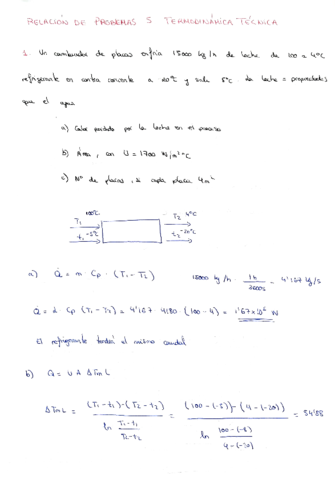 RELACIÓN DE PROBLEMAS 5 TERMODINÁMICA TÉCNICA
1 Un cambiador de placas enfría 15000 kg/h de leche de 100 a 4ºC
refrigerante en contra corriente a -20ºC y sale 5ºC la leche = propiedades
que el agua
a) Calor perdido por la leche en el proceso
b) Área, con U = 1700 W/m²ºC
c) Nº de placas, si cada placa 4m²
100ºC T2 4ºC
T1
t1 -5ºC t2 -20ºC
a) Q = m · Cp · (T1 - T2) 15000 kg/h · 1h/3600s = 4'167 kg/s
Q = Cp (T1 - T2) = 4'167 4180 · (100 - 4) = 1'67x10⁶ W
El refrigerante tendrá el mismo caudal
b) Q = U A ΔTmL
ΔTmL = (T1 - t1) - (T2 - t2) / ln T1 - t1 / T2 - t2 = (100 - (-5)) - (4 - (-20)) / ln 100 - (-5) / 4 - (-20) = 54'88